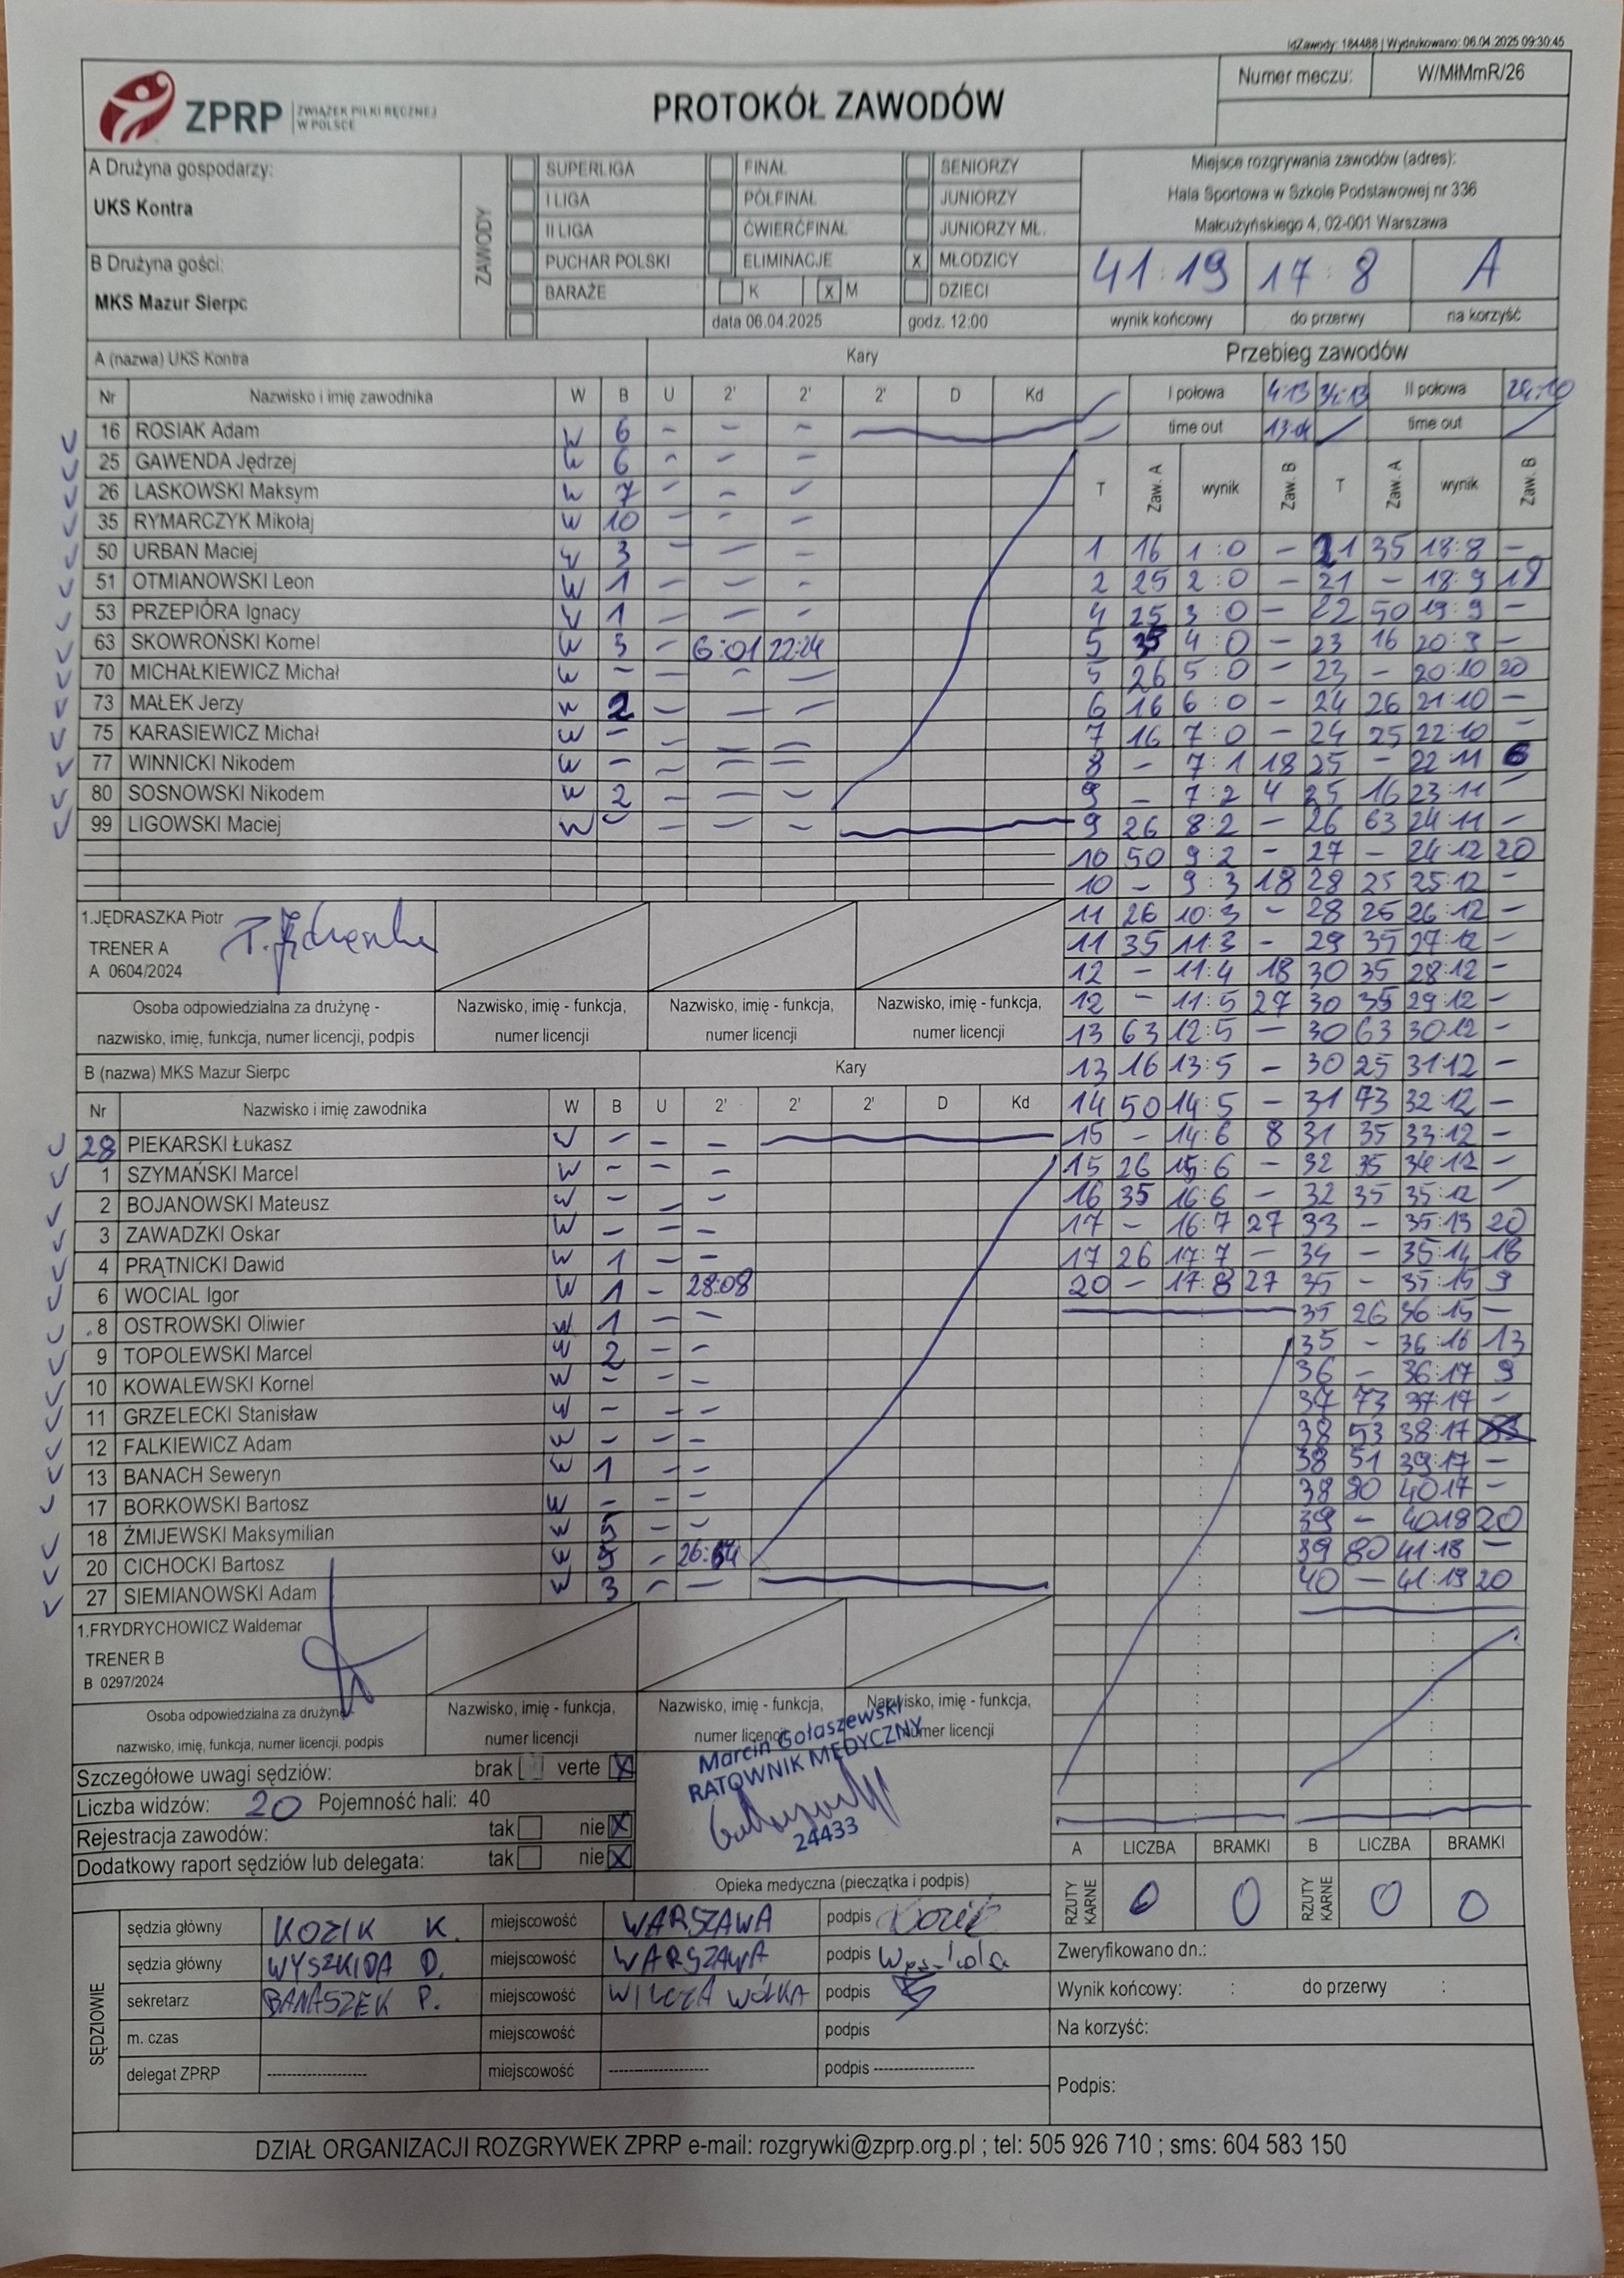 idZawody: 184488 | Wydrukowano: 06.04.2025 09:30:45
Numer meczu: W/MłMmR/26
ZPRP ZWIĄZEK PIŁKI RĘCZNEJ W POLSCE
PROTOKÓŁ ZAWODÓW
A Drużyna gospodarzy:
UKS Kontra
B Drużyna gości:
MKS Mazur Sierpc
ZAWODY
SUPERLIGA FINAŁ SENIORZY
I LIGA PÓŁFINAŁ JUNIORZY
II LIGA ĆWIERĆFINAŁ JUNIORZY MŁ.
PUCHAR POLSKI ELIMINACJE X MŁODZICY
BARAŻE K X M DZIECI
data 06.04.2025 godz. 12:00
Miejsce rozgrywania zawodów (adres):
Hala Sportowa w Szkole Podstawowej nr 336
Małcużyńskiego 4, 02-001 Warszawa
41:19 17:8 A
wynik końcowy do przerwy na korzyść
A (nazwa) UKS Kontra Kary
Nr Nazwisko i imię zawodnika W B U 2' 2' 2' D Kd
16 ROSIAK Adam W 6 - - -
25 GAWENDA Jędrzej W 6 - - -
26 LASKOWSKI Maksym W 7 - - -
35 RYMARCZYK Mikołaj W 10 - - -
50 URBAN Maciej W 3 - - -
51 OTMIANOWSKI Leon W 1 - - -
53 PRZEPIÓRA Ignacy W 1 - - -
63 SKOWROŃSKI Kornel W 3 - 6:01 22:24
70 MICHAŁKIEWICZ Michał W - - - -
73 MAŁEK Jerzy W 2 - - -
75 KARASIEWICZ Michał W - - - -
77 WINNICKI Nikodem W - - - -
80 SOSNOWSKI Nikodem W 2 - - -
99 LIGOWSKI Maciej W - - - -
1.JĘDRASZKA Piotr
TRENER A
A 0604/2024
Osoba odpowiedzialna za drużynę -
nazwisko, imię, funkcja, numer licencji, podpis
Nazwisko, imię - funkcja,
numer licencji
Nazwisko, imię - funkcja,
numer licencji
Nazwisko, imię - funkcja,
numer licencji
B (nazwa) MKS Mazur Sierpc Kary
Nr Nazwisko i imię zawodnika W B U 2' 2' 2' D Kd
28 PIEKARSKI Łukasz W - - -
1 SZYMAŃSKI Marcel W - - -
2 BOJANOWSKI Mateusz W - - -
3 ZAWADZKI Oskar W - - -
4 PRĄTNICKI Dawid W 1 - -
6 WOCIAL Igor W 1 - 28:08
8 OSTROWSKI Oliwier W 1 - -
9 TOPOLEWSKI Marcel W 2 - -
10 KOWALEWSKI Kornel W - - -
11 GRZELECKI Stanisław W - - -
12 FALKIEWICZ Adam W - - -
13 BANACH Seweryn W 1 - -
17 BORKOWSKI Bartosz W - - -
18 ŻMIJEWSKI Maksymilian W 5 - -
20 CICHOCKI Bartosz W 5 -
27 SIEMIANOWSKI Adam W 3 - -
1.FRYDRYCHOWICZ Waldemar
TRENER B
B 0297/2024
Osoba odpowiedzialna za drużynę -
nazwisko, imię, funkcja, numer licencji, podpis
Nazwisko, imię - funkcja,
numer licencji
Nazwisko, imię - funkcja,
numer licencji
Nazwisko, imię - funkcja,
numer licencji
Przebieg zawodów
I połowa II połowa
time out time out
T Zaw. A wynik Zaw. B T Zaw. A wynik Zaw. B
1 16 1:0 - 21 35 18:8 -
2 25 2:0 - 21 - 18:9 18
4 25 3:0 - 22 50 19:9 -
5 35 4:0 - 23 16 20:9 -
5 26 5:0 - 23 - 20:10 20
6 16 6:0 - 24 26 21:10 -
7 16 7:0 - 24 25 22:10 -
8 - 7:1 18 25 - 22:11 6
9 - 7:2 4 25 16 23:11 -
9 26 8:2 - 26 63 24:11 -
10 50 9:2 - 27 - 24:12 20
10 - 9:3 18 28 25 25:12 -
11 26 10:3 - 28 26 26:12 -
11 35 11:3 - 29 35 27:12 -
12 - 11:4 18 30 35 28:12 -
12 - 11:5 27 30 35 29:12 -
13 63 12:5 - 30 63 30:12 -
13 16 13:5 - 30 25 31:12 -
14 50 14:5 - 31 73 32:12 -
15 - 14:6 8 31 35 33:12 -
15 26 15:6 - 32 35 34:12 -
16 35 16:6 - 32 35 35:12 -
17 - 16:7 27 33 - 35:13 20
17 26 17:7 - 34 - 35:14 18
20 - 17:8 27 35 - 35:15 9
35 26 36:15 -
35 - 36:16 13
36 - 36:17 9
37 73 37:17 -
38 53 38:17
38 51 39:17 -
38 80 40:17 -
39 - 40:18 20
39 80 41:18 -
40 - 41:19 20
Szczegółowe uwagi sędziów: brak verte X
Liczba widzów: 20 Pojemność hali: 40
Rejestracja zawodów: tak nie X
Dodatkowy raport sędziów lub delegata: tak nie X
Marcin Gołaszewski
RATOWNIK MEDYCZNY
24433
Opieka medyczna (pieczątka i podpis)
A LICZBA BRAMKI B LICZBA BRAMKI
RZUTY KARNE 0 0 RZUTY KARNE 0 0
SĘDZIOWIE
sędzia główny KOZIK K. miejscowość WARSZAWA podpis
sędzia główny WYSZKIDA D. miejscowość WARSZAWA podpis
sekretarz BANASZEK P. miejscowość WILCZA WÓLKA podpis
m. czas miejscowość podpis
delegat ZPRP -------------------- miejscowość -------------------- podpis --------------------
Zweryfikowano dn.:
Wynik końcowy: : do przerwy :
Na korzyść:
Podpis:
DZIAŁ ORGANIZACJI ROZGRYWEK ZPRP e-mail: rozgrywki@zprp.org.pl ; tel: 505 926 710 ; sms: 604 583 150